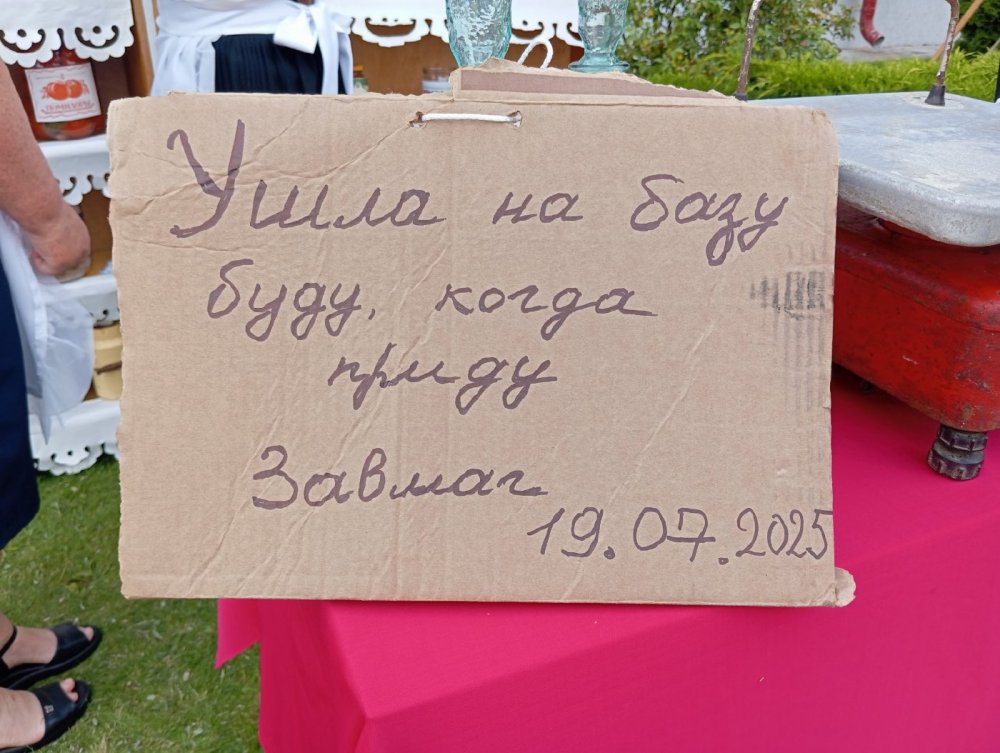 Ушла на базу
буду, когда
приду
Завмаг
19.07.2025